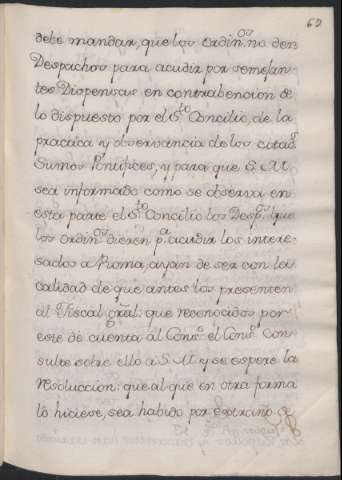 62
debe mandar, que los ordin.os no den
Despachos para acudir por semejan-
tes Dispensas en contrabencion de
lo dispuesto por el S.to Concilio, de la
practica y observancia de los citad.s
Sumos Pontifices, y para que S. M.
sea informado como se observa en
esta parte el S.to Concilio los Desp.os que
los ordin.os dieren p.a acudir los intere-
sados a Roma, ayan de ser con la
calidad de que antes los presenten
al Fiscal gral: que reconocidos por
este dé cuenta al Cons.o el Cons.o con-
sulte sobre ello a S. M. y se espere la
resoluccion: que al que en otra forma
lo hiciese, sea habido por extraño de